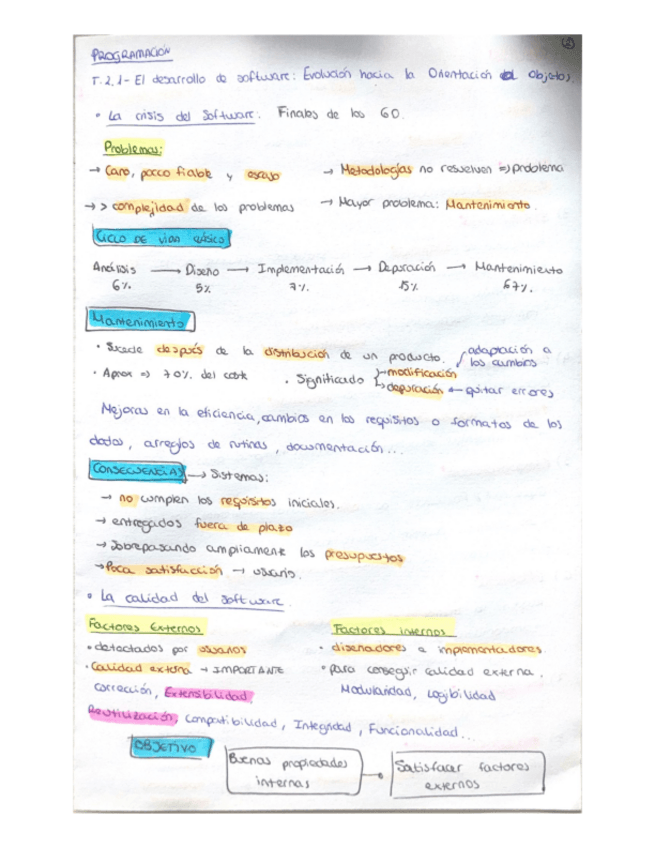 PROGRAMACIÓN
T.2.1- El desarrollo de software: Evolución hacia la Orientación Objetos
• La crisis del Software: Finales de los 60.
Problemas:
→ Caro, pocco fiable y escaso → Metodologías no resuelven => problema
→ > complejidad de los problemas → Mayor problema: Mantenimiento.
CICLO DE VIDA CLÁSICO
Análisis → Diseño → Implementación → Depuración → Mantenimiento
6%. 5% 7%. 15% 67%.
Mantenimiento
• Sucede después de la distribución de un producto. adaptación a
los cambios
• Aprox => 70%. del coste • Significado modificación
depuración ← quitar errores
Mejoras en la eficiencia, cambios en los requisitos o formatos de los
datos, arreglos de rutinas, documentación...
CONSECUENCIAS → Sistemas:
→ no cumplen los requisitos iniciales.
→ entregados fuera de plazo
→ Sobrepasando ampliamente los presupuestos
→ Poca satisfacción → usuario.
• La calidad del software.
Factores Externos Factores internos
• detectados por usuarios • diseñadores e implementadores.
• Calidad externa → IMPORTANTE • para conseguir calidad externa.
corrección, Extensibilidad Modularidad, Legibilidad
Reutilización, Compatibilidad, Integridad, Funcionalidad...
OBJETIVO
Buenas propiedades Satisfacer factores
internas externos